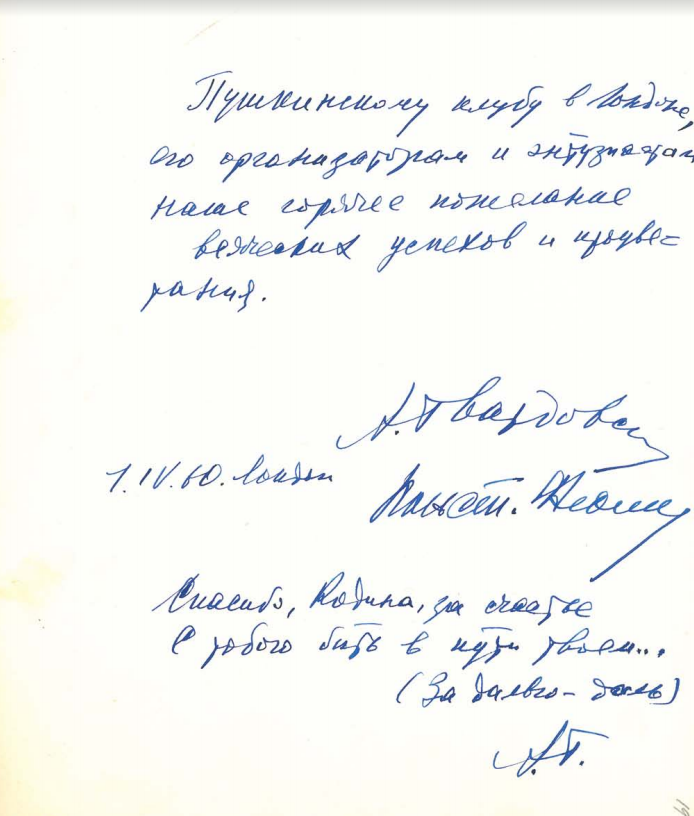 Пушкинскому клубу в Лондоне,
его организаторам и энтузиастам
наше горячее пожелание
всяческих успехов и процве=
тания.
А. Твардовский
1.IV.60. Лондон
Конст. Федин
Спасибо, Родина, за счастье
С тобою быть в пути твоем...
(За далью – даль)
А.Т.